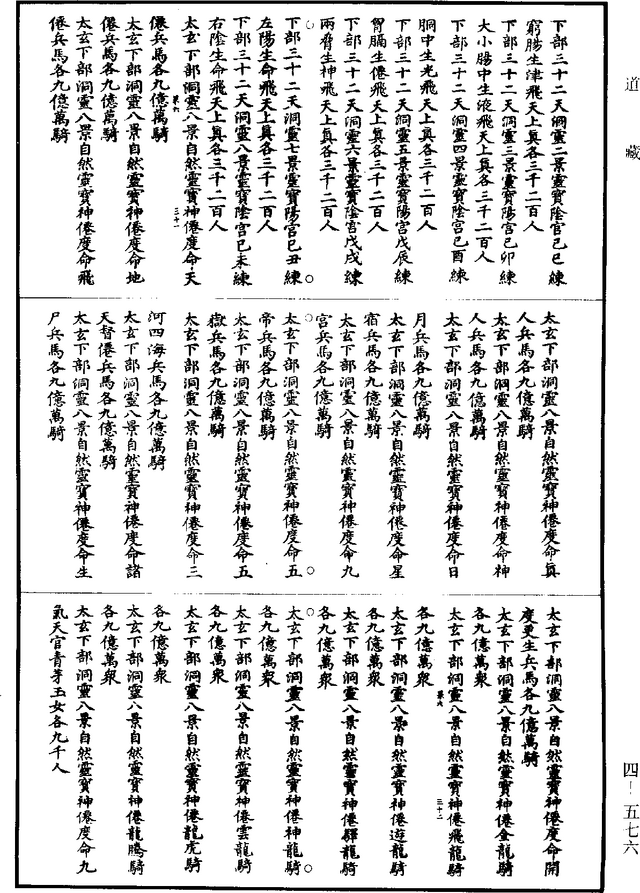 道藏
四-五七六
下部三十二天洞靈二景靈寶陰宮己巳練
窮腸生津飛天上真各三千二百人
下部三十二天洞靈三景靈寶陽宮己卯練
大小腸中生液飛天上真各三千二百人
下部三十二天洞靈四景靈寶陰宮己酉練
胴中生光飛天上真各三千二百人
下部三十二天洞靈五景靈寶陽宮戊辰練
胃膈生僊飛天上真各三千二百人
下部三十二天洞靈六景靈寶陰宮戊戌練
兩脅生神飛天上真各三千二百人
下部三十二天洞靈七景靈寶陽宮己丑練
左陽生命飛天上真各三千二百人
下部三十二天洞靈八景靈寶陰宮己未練
右陰生命飛天上真各三千二百人
太玄下部洞靈八景自然靈寶神僊度命天
第六 三十一
僊兵馬各九億萬騎
太玄下部洞靈八景自然靈寶神僊度命地
僊兵馬各九億萬騎
太玄下部洞靈八景自然靈寶神僊度命飛
僊兵馬各九億萬騎
太玄下部洞靈八景自然靈寶神僊度命真
人兵馬各九億萬騎
太玄下部洞靈八景自然靈寶神僊度命神
人兵馬各九億萬騎
太玄下部洞靈八景自然靈寶神僊度命日
月兵馬各九億萬騎
太玄下部洞靈八景自然靈寶神僊度命星
宿兵馬各九億萬騎
太玄下部洞靈八景自然靈寶神僊度命九
宮兵馬各九億萬騎
太玄下部洞靈八景自然靈寶神僊度命五
帝兵馬各九億萬騎
太玄下部洞靈八景自然靈寶神僊度命五
嶽兵馬各九億萬騎
太玄下部洞靈八景自然靈寶神僊度命三
河四海兵馬各九億萬騎
太玄下部洞靈八景自然靈寶神僊度命諸
天督僊兵馬各九億萬騎
太玄下部洞靈八景自然靈寶神僊度命生
尸兵馬各九億萬騎
太玄下部洞靈八景自然靈寶神僊度命開
度更生兵馬各九億萬騎
太玄下部洞靈八景自然靈寶神僊金龍騎
各九億萬衆
太玄下部洞靈八景自然靈寶神僊飛龍騎
第六 三十二
各九億萬衆
太玄下部洞靈八景自然靈寶神僊遊龍騎
各九億萬衆
太玄下部洞靈八景自然靈寶神僊驛龍騎
各九億萬衆
太玄下部洞靈八景自然靈寶神僊神龍騎
各九億萬衆
太玄下部洞靈八景自然靈寶神僊雲龍騎
各九億萬衆
太玄下部洞靈八景自然靈寶神僊龍虎騎
各九億萬衆
太玄下部洞靈八景自然靈寶神僊龍騰騎
各九億萬衆
太玄下部洞靈八景自然靈寶神僊度命九
氣天官青芽玉女各九千人